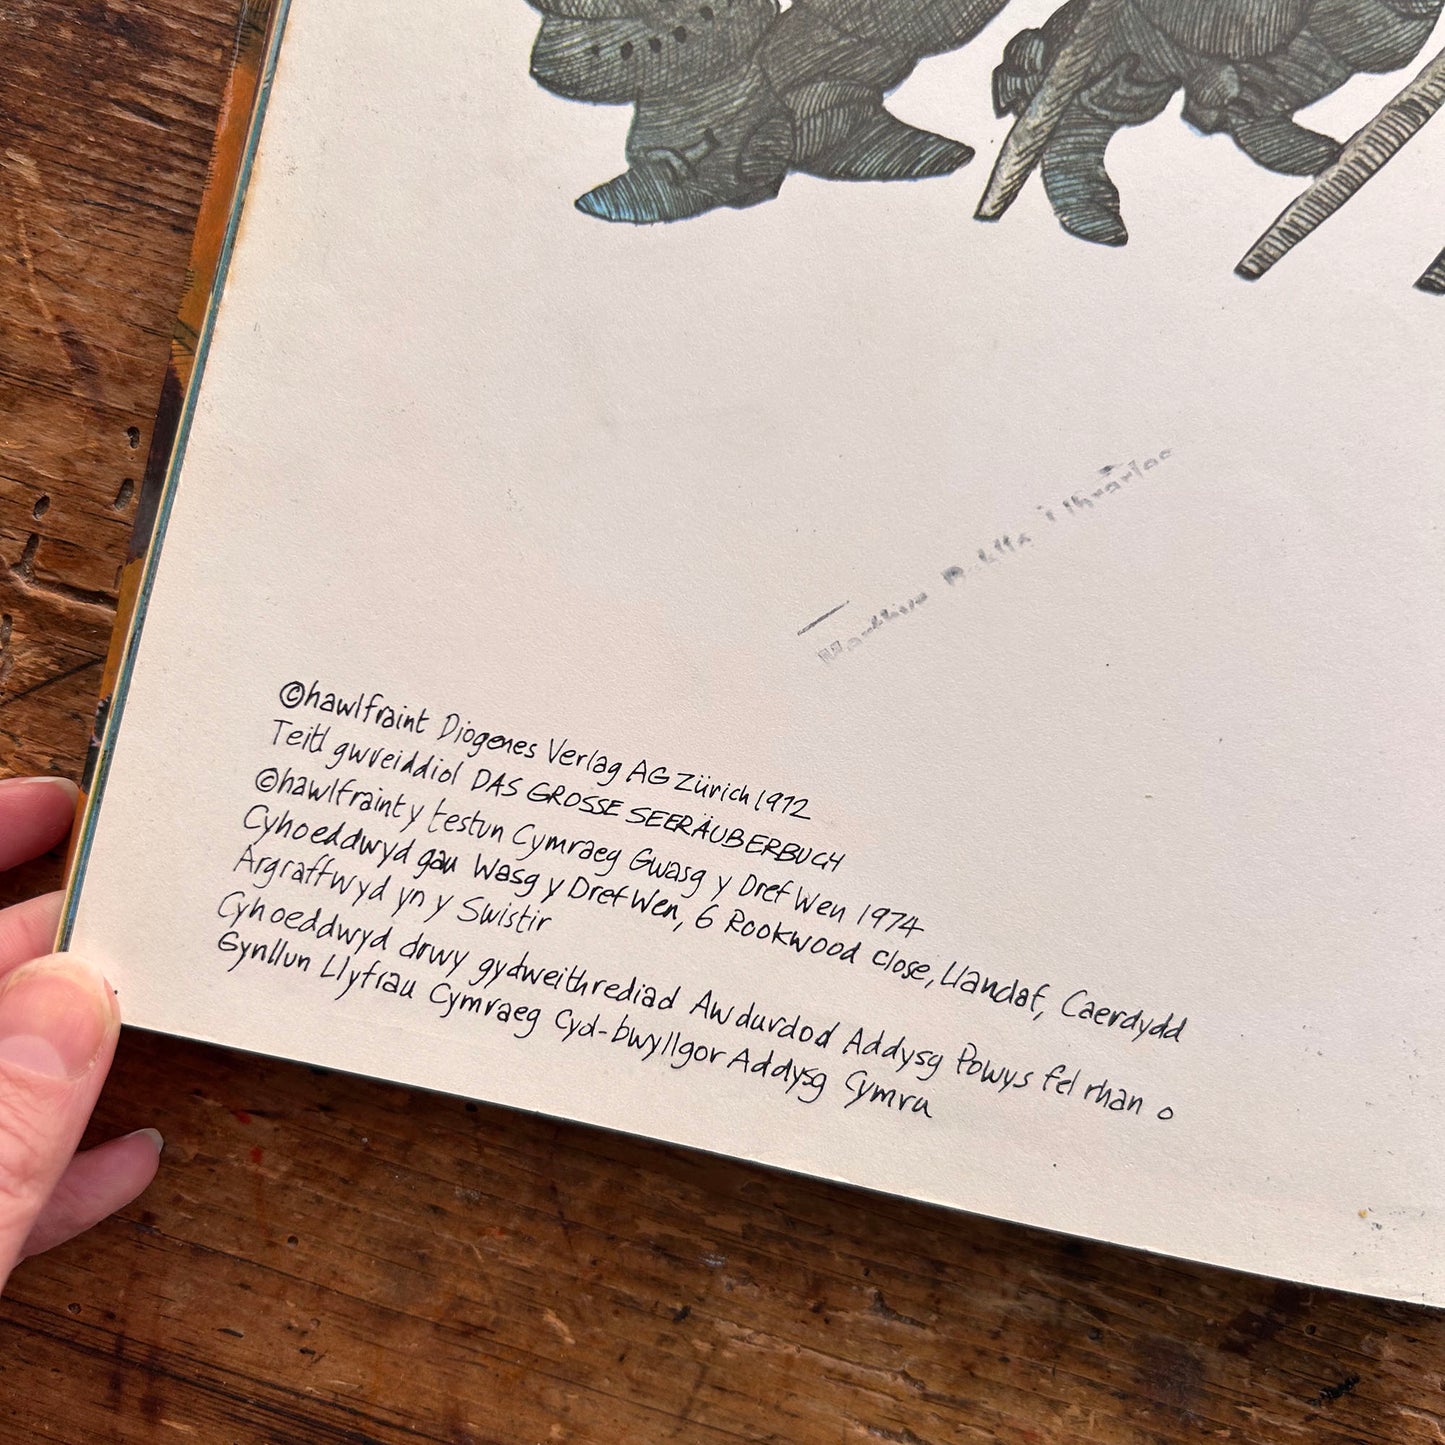 Public Libraries
©hawlfraint Diogenes Verlag AG Zürich 1972
Teitl gwreiddiol DAS GROSSE SEERÄUBERBUCH
©hawlfraint y testun Cymraeg Gwasg y Dref Wen 1974
Cyhoeddwyd gau Wasg y Dref Wen, 6 Rookwood Close, Llandaf, Caerdydd
Argraffwyd yn y Swistir
Cyhoeddwyd drwy gydweithrediad Awdurdod Addysg Powys fel rhan o
Gynllun Llyfrau Cymraeg Cyd-bwyllgor Addysg Cymru